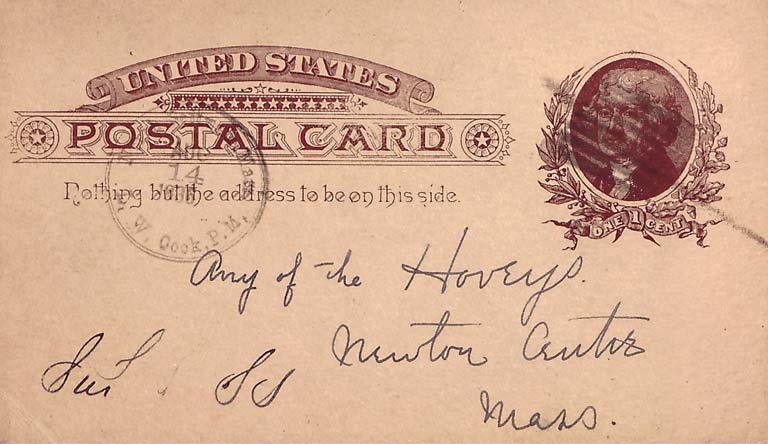 UNITED STATES
POSTAL CARD
Nothing but the address to be on this side.
AUG
14
W. Cook, P.M.
ONE 1 CENT
Any of the Hoveys.
Newton Centre
Mass.